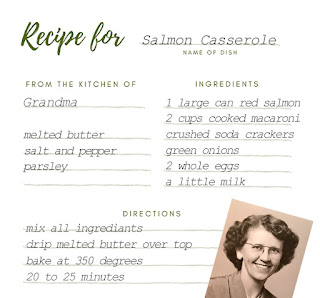 Recipe for Salmon Casserole
NAME OF DISH
FROM THE KITCHEN OF
Grandma
melted butter
salt and pepper
parsley
INGREDIENTS
1 large can red salmon
2 cups cooked macaroni
crushed soda crackers
green onions
2 whole eggs
a little milk
DIRECTIONS
mix all ingrediants
drip melted butter over top
bake at 350 degrees
20 to 25 minutes